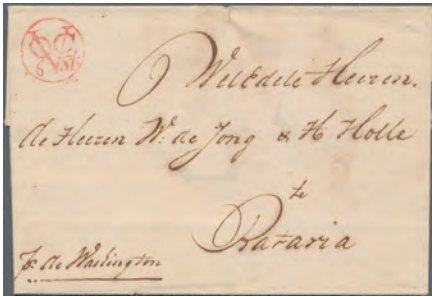 WelEdele Heeren.
de Heeren W: de Jong & H Holle
te
Batavia
p: de Washington